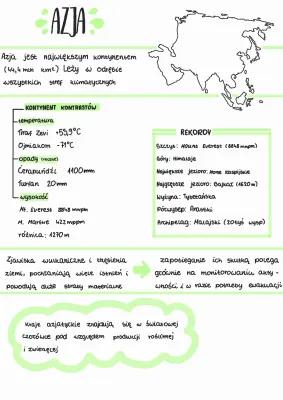 AZJA
Azja jest największym kontynentem
(44,4 mln km²) Leży w obrębie
wszystkich stref klimatycznych
KONTYNENT KONTRASTÓW
temperatura
Tirat Zevi +53,9°C
Ojmiakon -71°C
opady (roczne)
Czerapundżi 11000mm
Turfan 20mm
wysokość
Mt. Everest 8848 mnpm
M. Martwe 422 mppm
różnica: 9270m
REKORDY
Szczyt: Mount Everest (8848mnpm)
Góry: Himalaje
Największe jezioro: Morze Kaspijskie
Najgłębsze jezioro: Bajkał (1620m)
Wyżyna: Tybetańska
Półwysep: Arabski
Archipelag: Malajski (20tyś wysp)
Zjawiska wulkaniczne i trzęsienia
ziemi, pochłaniają wiele istnień i
powodują duże straty materialne
zapobieganie ich skutką polega
głównie na monitorowaniu akty-
wności i w razie potrzeby ewakuacji
kraje azjatyckie znajdują się w światowej
czołówce pod względem produkcji roślinnej
i zwierzęcej